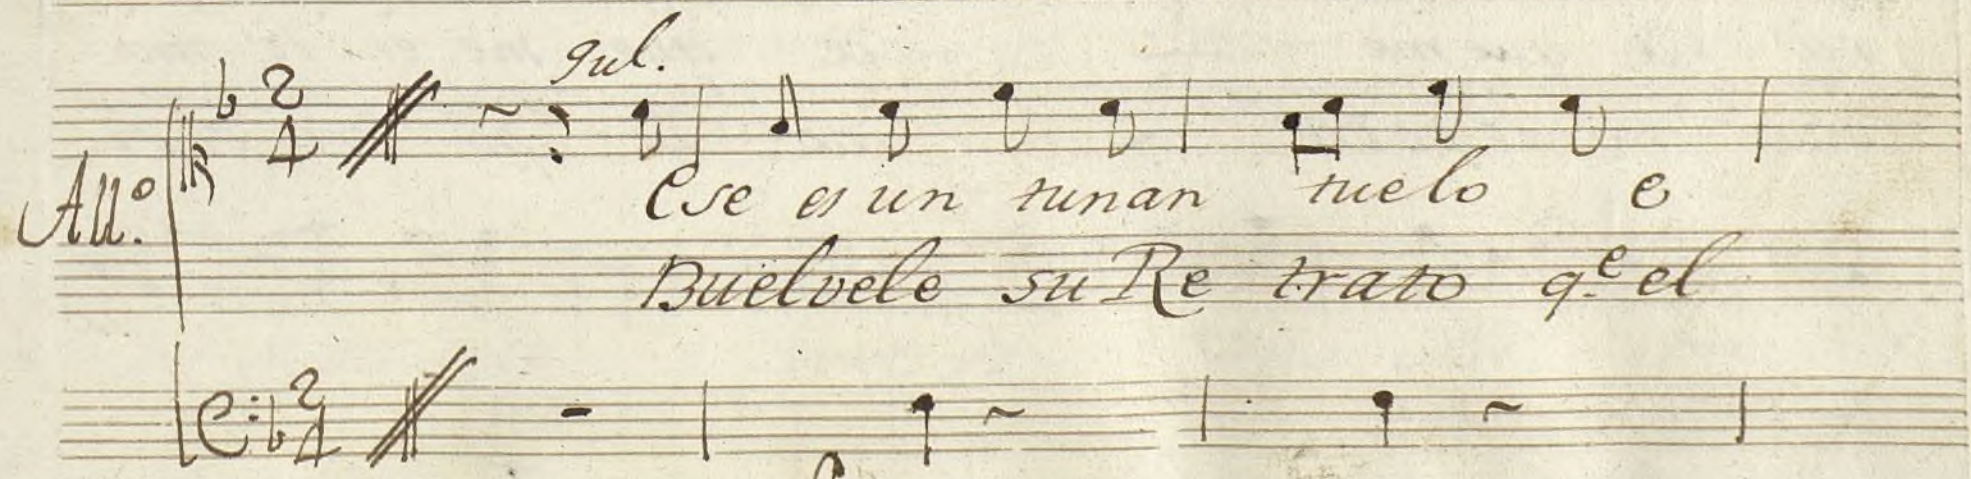 gul.
Allº
Ese es un tunan tuelo e
Buelvele su Re trato q.e el